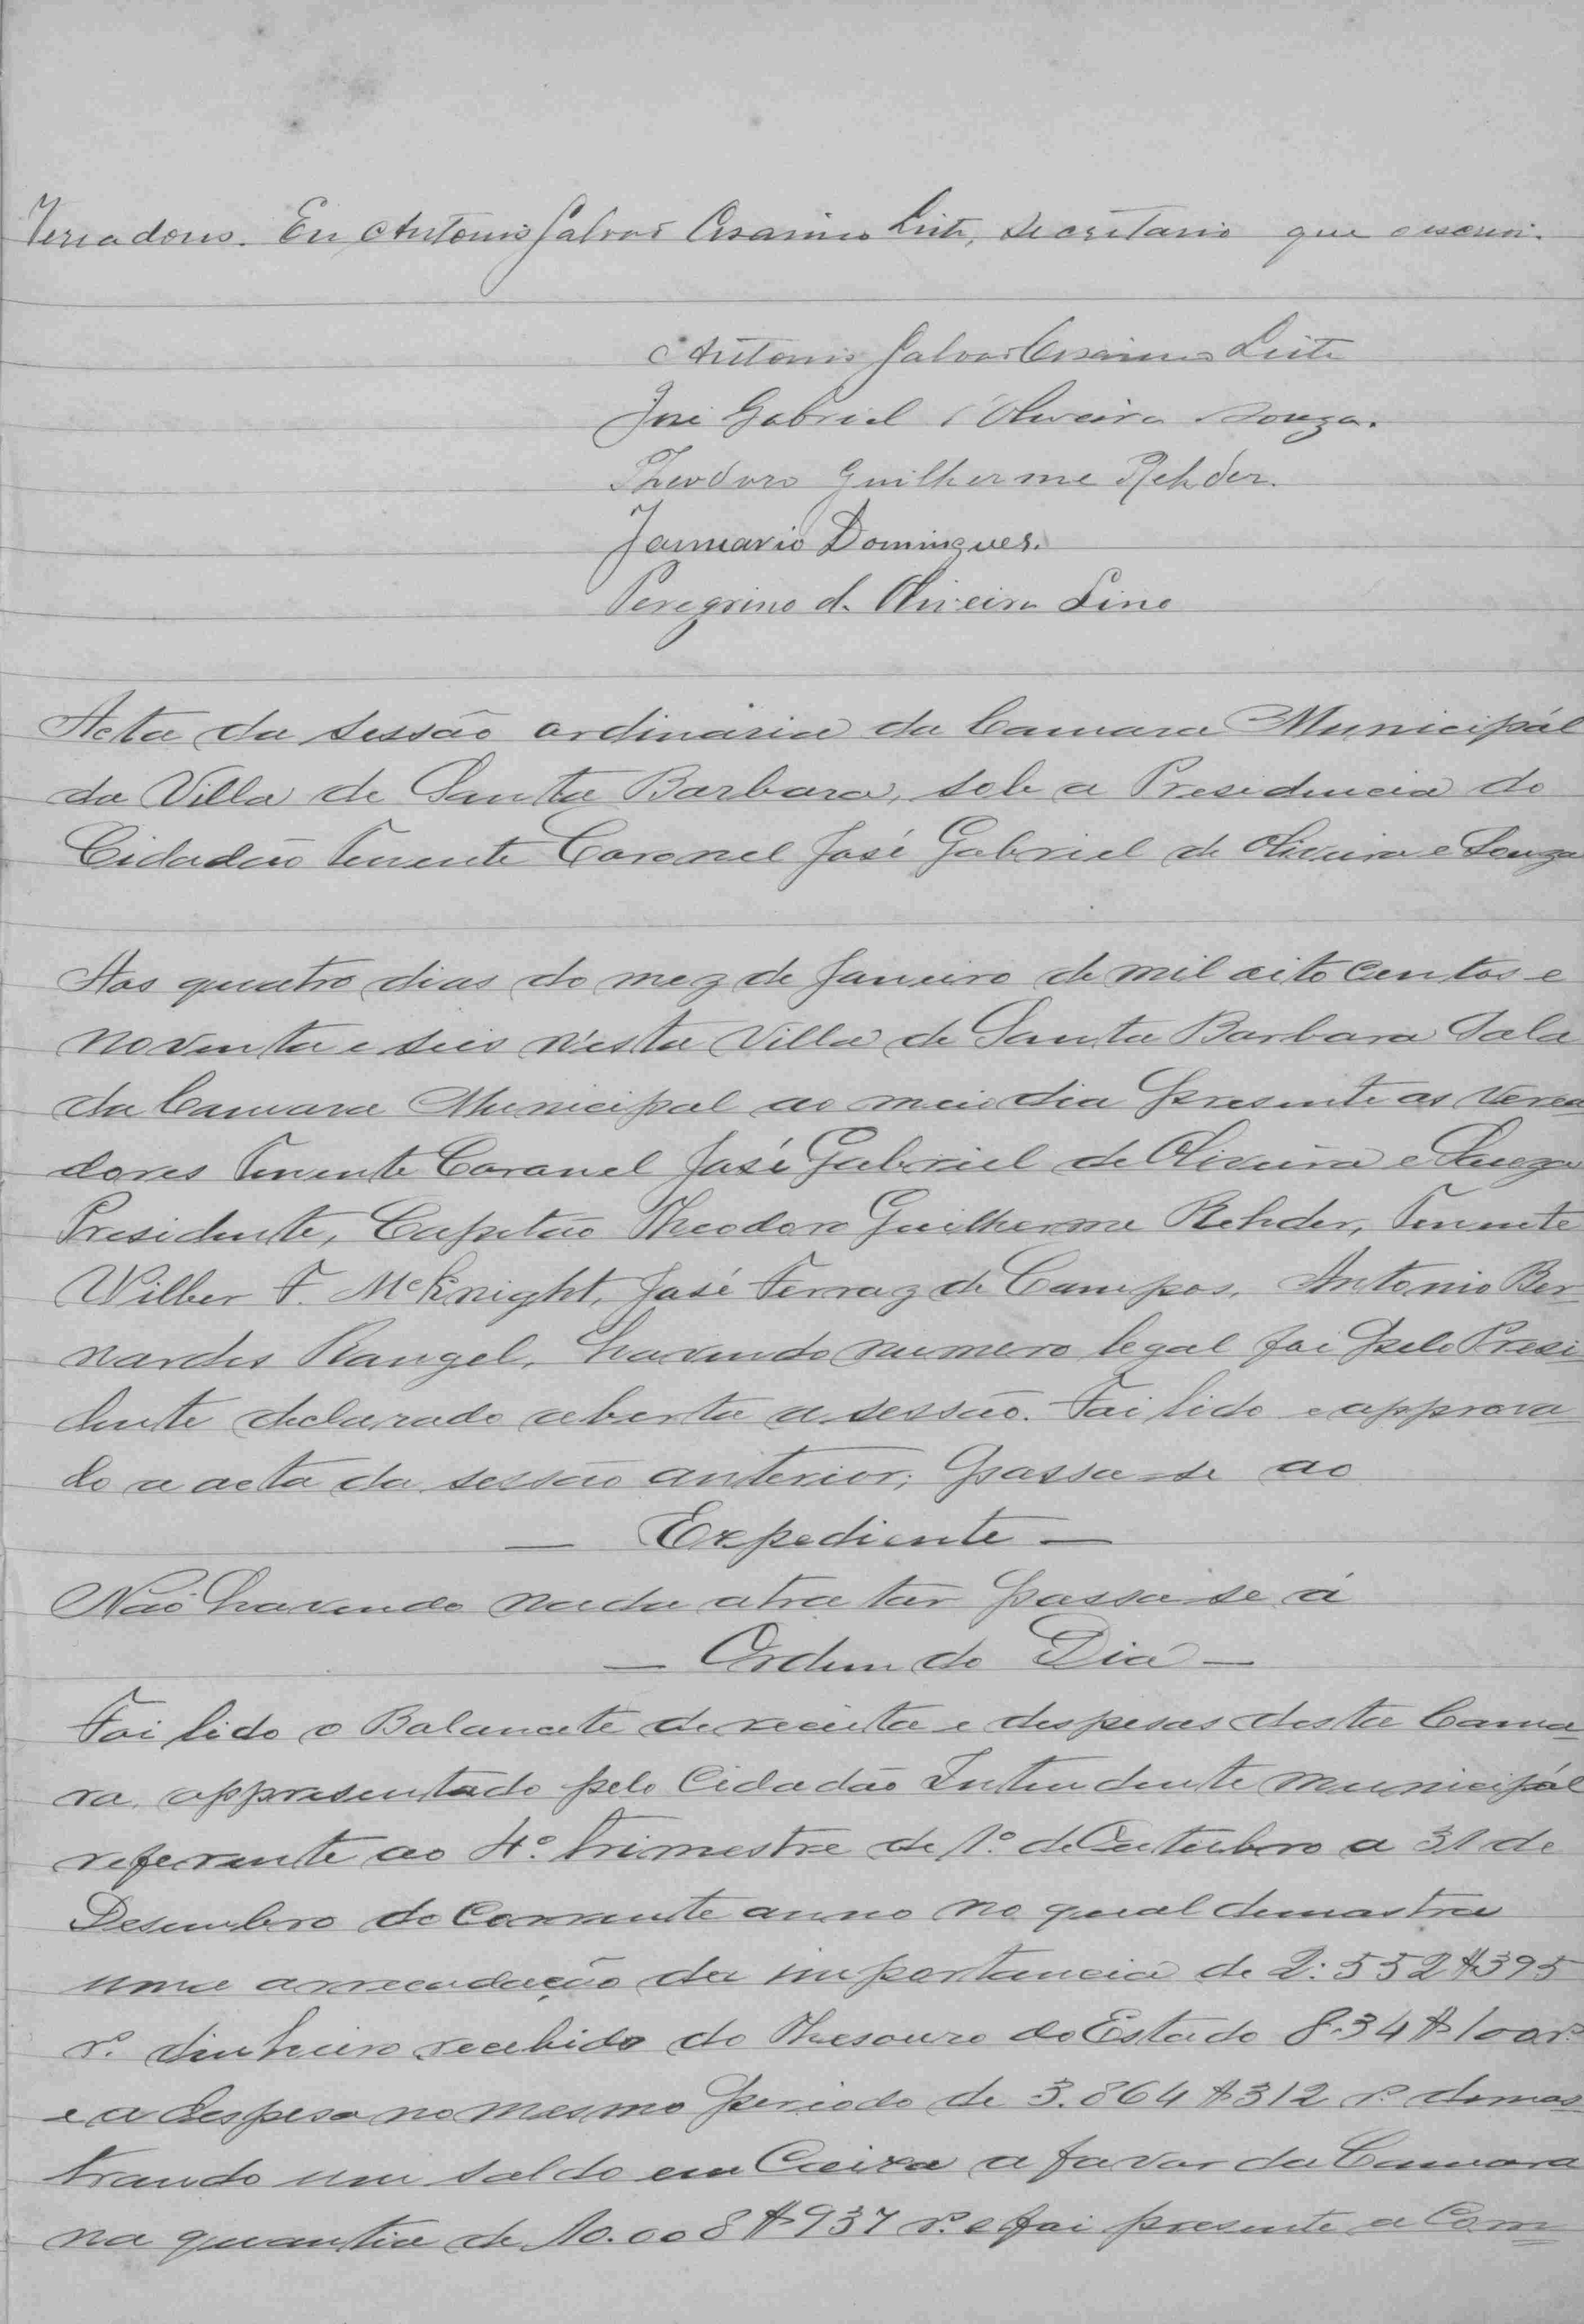 Vereadores. Eu Antonio Galvão Cesarino Leite, secretario que o escrevi.
Antonio Galvão Cesarino Leite
José Gabriel d'Oliveira Souza.
Theodoro Guilherme Rehder.
Januario Domingues.
Peregrino d. Oliveira Lino
Acta da sessão ordinaria da Camara Municipál
da Villa de Santa Barbara, sob a Presidencia do
Cidadão Tenente Coronel José Gabriel de Oliveira e Souza
Aos quatro dias do mez de Janeiro de mil oito centos e
noventa e seis n'esta Villa de Santa Barbara Sala
da Camara Municipal ao meio dia presente os verea
dores Tenente Coronel José Gabriel de Oliveira e Souza
Presidente, Capitão Theodoro Guilherme Rehder, Tenente
Wilber F. McKnight, José Ferraz de Campos, Antonio Ber
nardes Rangel, havendo numero legal foi pelo Presi
dente declarado aberta a sessão. Foi lido e approva
do a acta da sessão anterior; passa-se ao
— Expediente —
Não havendo nada a tratar passa-se á
— Ordem do Dia —
Foi lido o Balancete de receita e despesas desta Cama
ra, appresentado pelo Cidadão Intendente municipál
referente ao 4º trimestre de 1º de Outubro a 31 de
Desembro do Corrente anno no qual demostra
uma arrecadação da importancia de 2:552$395
rº. dinheiro recebido do Thesouro do Estado 8.34$100rº
e a despesa no mesmo periodo de 3.864$312 rº. demos
trando um saldo em Caixa a favor da Camara
na quantia de 10.008$937 rº. e foi presente a Com